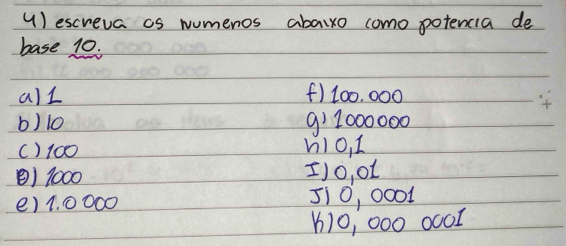 4) escreva os numeros abaixo como potencia de
base 10.
a) 1
b) 10
c) 100
D) 1000
e) 1.0000
f) 100.000
g) 1000000
h) 0,1
I) 0,01
J) 0,0001
K) 0,000 0001